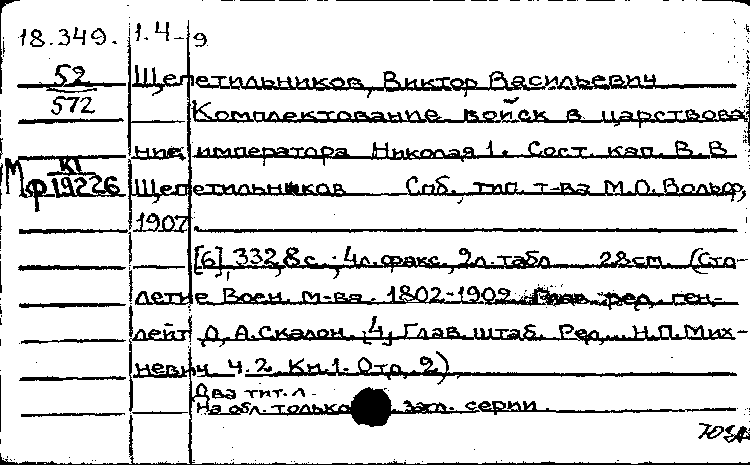 18.349. 1.4-9
52
572
Щепетильников, Виктор Васильевич
Комплектование войск в царствова
ние императора Николая 1. Сост. кап. В.В
М К1
ф 19226
Щепетильников Спб., тип. т-ва М.О. Вольф,
1907.
[6], 332, 8 с.; 4 л. факс, 9 л. табл 28 см. (Сто-
летие Воен. м-ва. 1802-1902 Глав. ред. ген.-
лейт Д.А. Скалон. [4, Глав. штаб. Ред. Н.П. Мих-
невич Ч.2. Кн.1. Отд. 2)
Два тит. л.
На обл. только загл. серии.